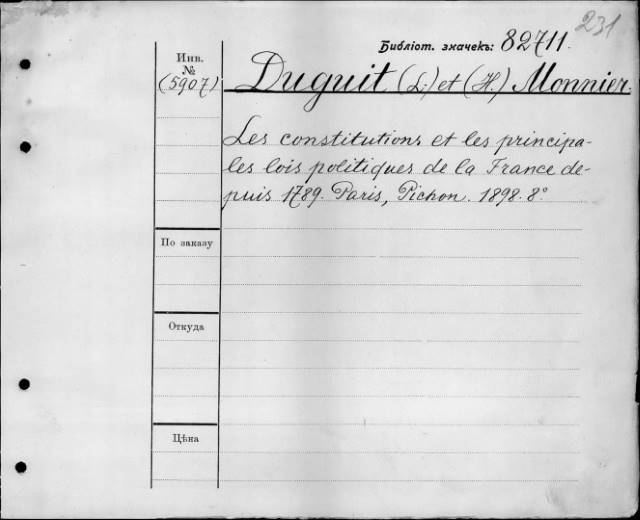 231
Библіот. значекъ: 82711.
Инв.
№
(5907)
Duguit (L.) et (H.) Monnier.
Les constitutions et les principa-
les lois politiques de la France de-
puis 1789. Paris, Pichon. 1898. 8°.
По заказу
Откуда
Цѣна